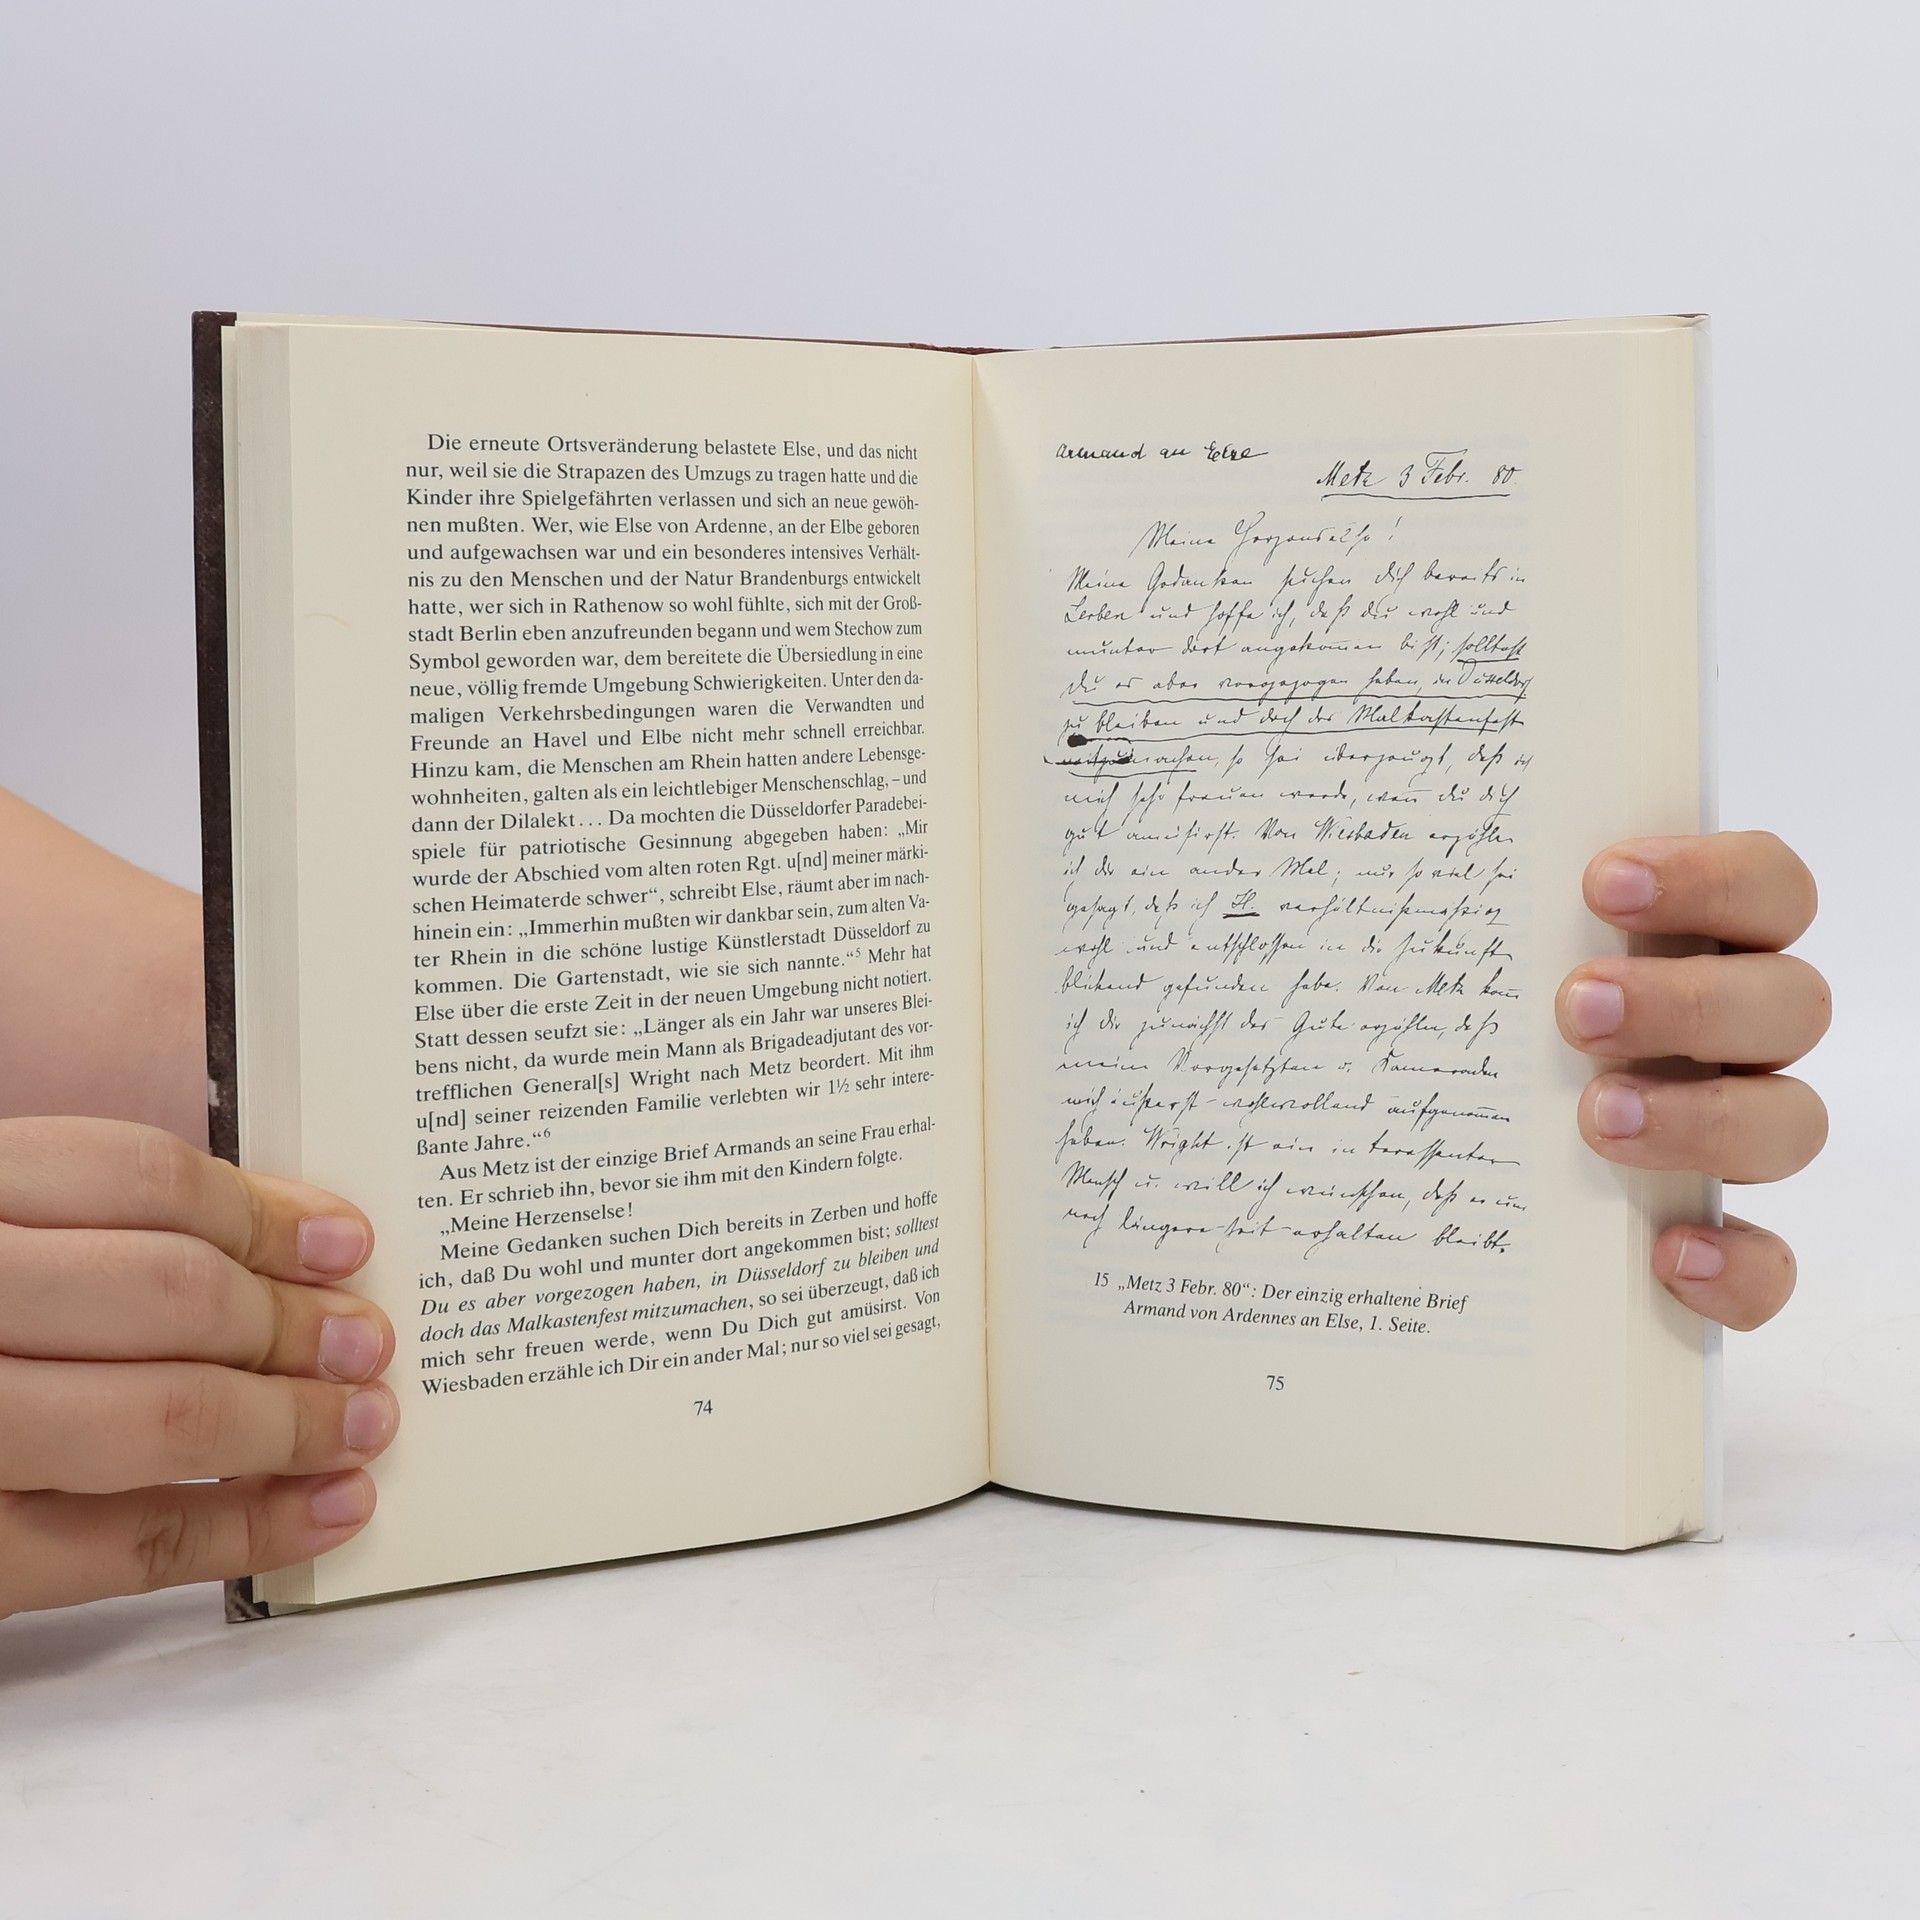 Die erneute Ortsveränderung belastete Else, und das nicht
nur, weil sie die Strapazen des Umzugs zu tragen hatte und die
Kinder ihre Spielgefährten verlassen und sich an neue gewöh-
nen mußten. Wer, wie Else von Ardenne, an der Elbe geboren
und aufgewachsen war und ein besonderes intensives Verhält-
nis zu den Menschen und der Natur Brandenburgs entwickelt
hatte, wer sich in Rathenow so wohl fühlte, sich mit der Groß-
stadt Berlin eben anzufreunden begann und wem Stechow zum
Symbol geworden war, dem bereitete die Übersiedlung in eine
neue, völlig fremde Umgebung Schwierigkeiten. Unter den da-
maligen Verkehrsbedingungen waren die Verwandten und
Freunde an Havel und Elbe nicht mehr schnell erreichbar.
Hinzu kam, die Menschen am Rhein hatten andere Lebensge-
wohnheiten, galten als ein leichtlebiger Menschenschlag, – und
dann der Dilalekt... Da mochten die Düsseldorfer Paradebei-
spiele für patriotische Gesinnung abgegeben haben: „Mir
wurde der Abschied vom alten roten Rgt. u[nd] meiner märki-
schen Heimaterde schwer“, schreibt Else, räumt aber im nach-
hinein ein: „Immerhin mußten wir dankbar sein, zum alten Va-
ter Rhein in die schöne lustige Künstlerstadt Düsseldorf zu
kommen. Die Gartenstadt, wie sie sich nannte.“⁵ Mehr hat
Else über die erste Zeit in der neuen Umgebung nicht notiert.
Statt dessen seufzt sie: „Länger als ein Jahr war unseres Blei-
bens nicht, da wurde mein Mann als Brigadeadjutant des vor-
trefflichen General[s] Wright nach Metz beordert. Mit ihm
u[nd] seiner reizenden Familie verlebten wir 1½ sehr intere-
ßante Jahre.“⁶
Aus Metz ist der einzige Brief Armands an seine Frau erhal-
ten. Er schrieb ihn, bevor sie ihm mit den Kindern folgte.
„Meine Herzenselse!
Meine Gedanken suchen Dich bereits in Zerben und hoffe
ich, daß Du wohl und munter dort angekommen bist; solltest
Du es aber vorgezogen haben, in Düsseldorf zu bleiben und
doch das Malkastenfest mitzumachen, so sei überzeugt, daß ich
mich sehr freuen werde, wenn Du Dich gut amüsirst. Von
Wiesbaden erzähle ich Dir ein ander Mal; nur so viel sei gesagt,
74
Armand an Else
Metz 3 Febr. 80.
Meine Herzenselse!
Meine Gedanken suchen Dich bereits in
Zerben und hoffe ich, daß Du wohl und
munter dort angekommen bist; solltest
Du es aber vorgezogen haben, in Düsseldorf
zu bleiben und doch das Malkastenfest
mitzumachen, so sei überzeugt, daß ich
mich sehr freuen werde, wenn Du Dich
gut amüsirst. Von Wiesbaden erzähle
ich Dir ein ander Mal; nur so viel sei
gesagt, daß ich H. verhältnißmäßig
wohl und entschlossen in die Zukunft
blickend gefunden habe. Von Metz kann
ich Dir zunächst das Gute erzählen, daß
meine Vorgesetzten u. Kameraden
mich äußerst wohlwollend aufgenommen
haben. Wright ist ein interessanter
Mensch u. will ich wünschen, daß er uns
noch längere Zeit erhalten bleibt.
15 „Metz 3 Febr. 80“: Der einzig erhaltene Brief
Armand von Ardennes an Else, 1. Seite.
75